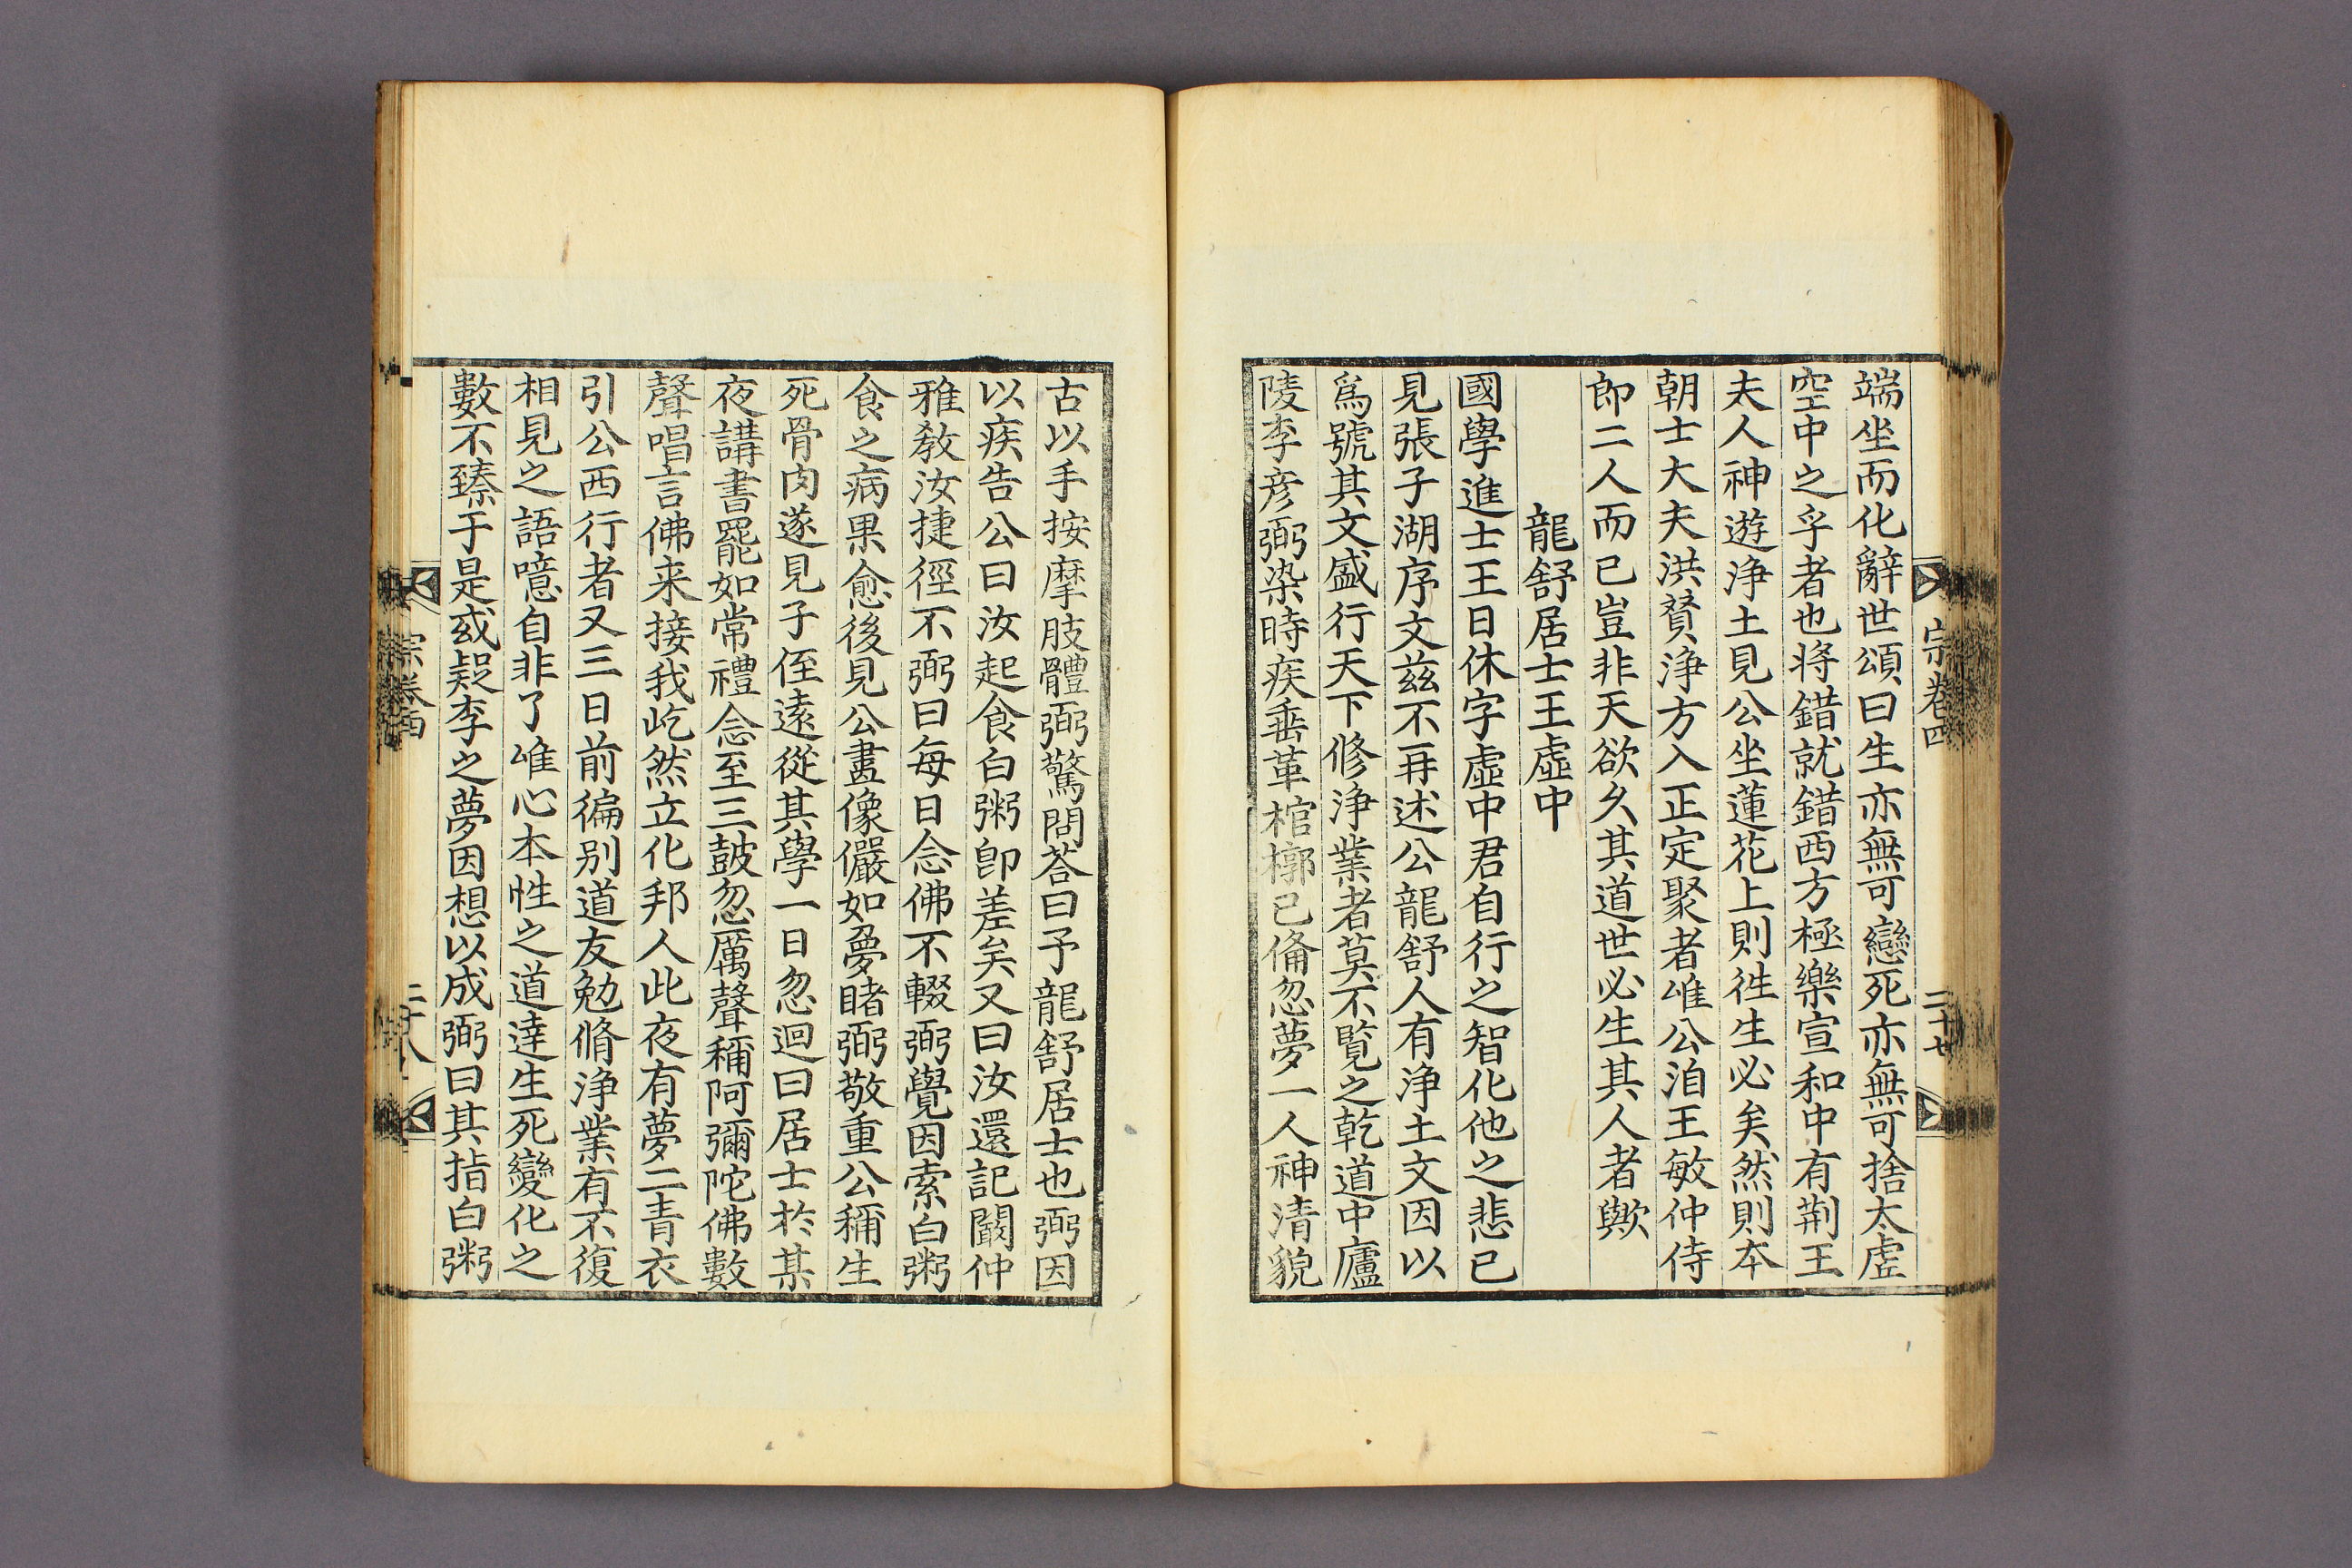 宗卷四
二十七
端坐而化辭世頌曰生亦無可戀死亦無可捨太虛
空中之乎者也将錯就錯西方極樂宣和中有荆王
夫人神遊浄土見公坐蓮花上則徃生必矣然則夲
朝士大夫洪賛浄方入正定聚者唯公洎王敏仲侍
郎二人而已豈非天欲久其道世必生其人者歟
龍舒居士王虛中
國學進士王日休字虛中君自行之智化他之悲已
見張子湖序文兹不再述公龍舒人有浄土文因以
爲號其文盛行天下修浄業者莫不覧之乾道中廬
陵李彦弼染時疾垂革棺槨已俻忽夢一人神清貌
古以手按摩肢體弼驚問荅曰予龍舒居士也弼因
以疾告公曰汝起食白粥卽差矣又曰汝還記闞仲
雅教汝捷徑不弼曰每日念佛不輟弼覺因索白粥
食之病果愈後見公畫像儼如夢睹弼敬重公稱生
死骨肉遂見子侄逺從其學一日忽迴曰居士扵某
夜講書罷如常禮念至三鼓忽厲聲稱阿彌陀佛數
聲唱言佛来接我屹然立化邦人此夜有夢二青衣
引公西行者又三日前徧别道友勉脩浄業有不復
相見之語噫自非了唯心本性之道達生死變化之
數不臻于是或疑李之夢因想以成弼曰其指白粥
宗卷四
二十八